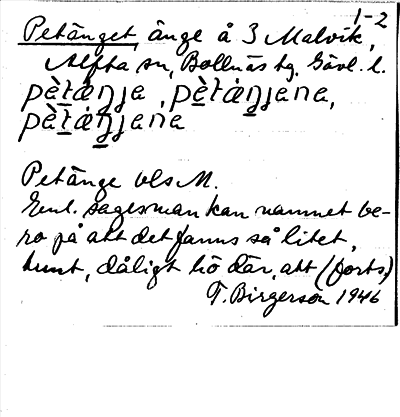 1-2
Petänget, änge å 3 Malvik,
Alfta sn, Bollnäs tg. Gävl. l.
pètáŋja, pètáŋjana,
pètáŋjana
Petänge bls M.
Enl. sagesman kan namnet be-
ro på att det fanns så litet,
tunt, dåligt hö där, att (forts.)
T. Birgerson 1946